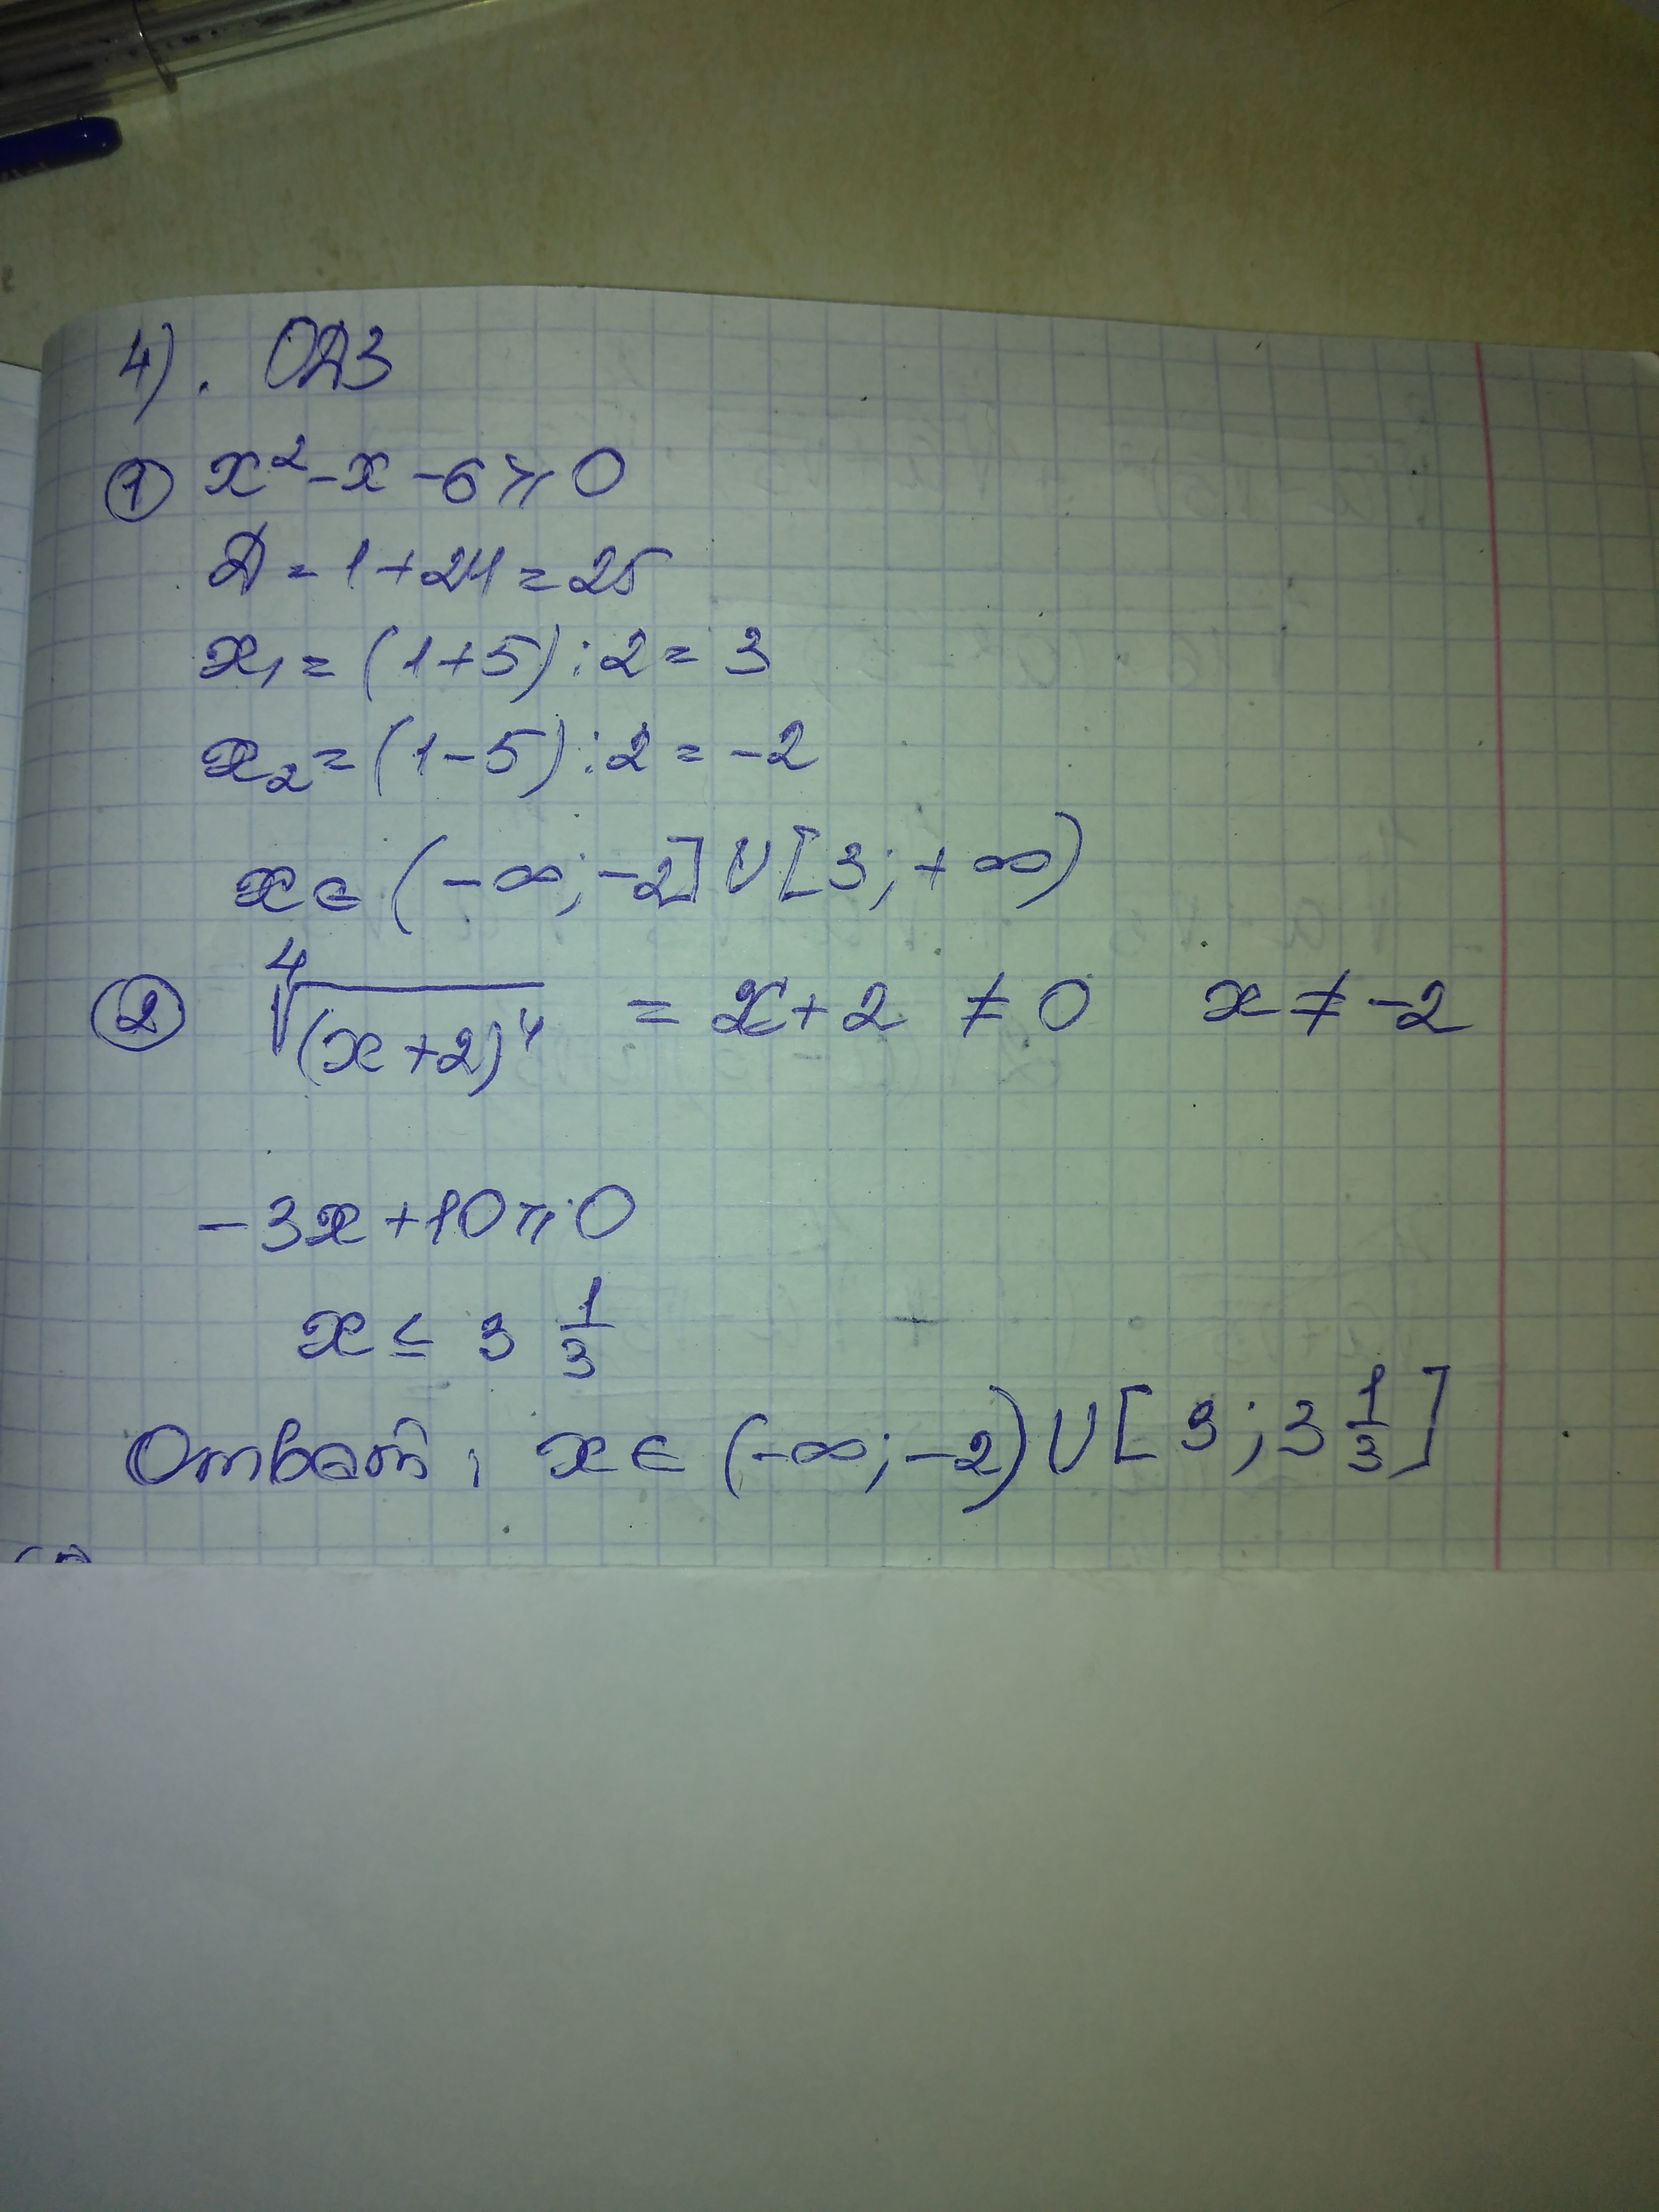 4). ОДЗ
① x² - x - 6 ⩾ 0
Д = 1 + 24 = 25
x₁ = (1+5) : 2 = 3
x₂ = (1-5) : 2 = -2
x ∈ (-∞; -2] ∪ [3; +∞)
② ⁴√(x+2)⁴ = x + 2 ≠ 0 x ≠ -2
-3x + 10 ⩾ 0
x ≤ 3 1/3
Ответ: x ∈ (-∞; -2) ∪ [3; 3 1/3]